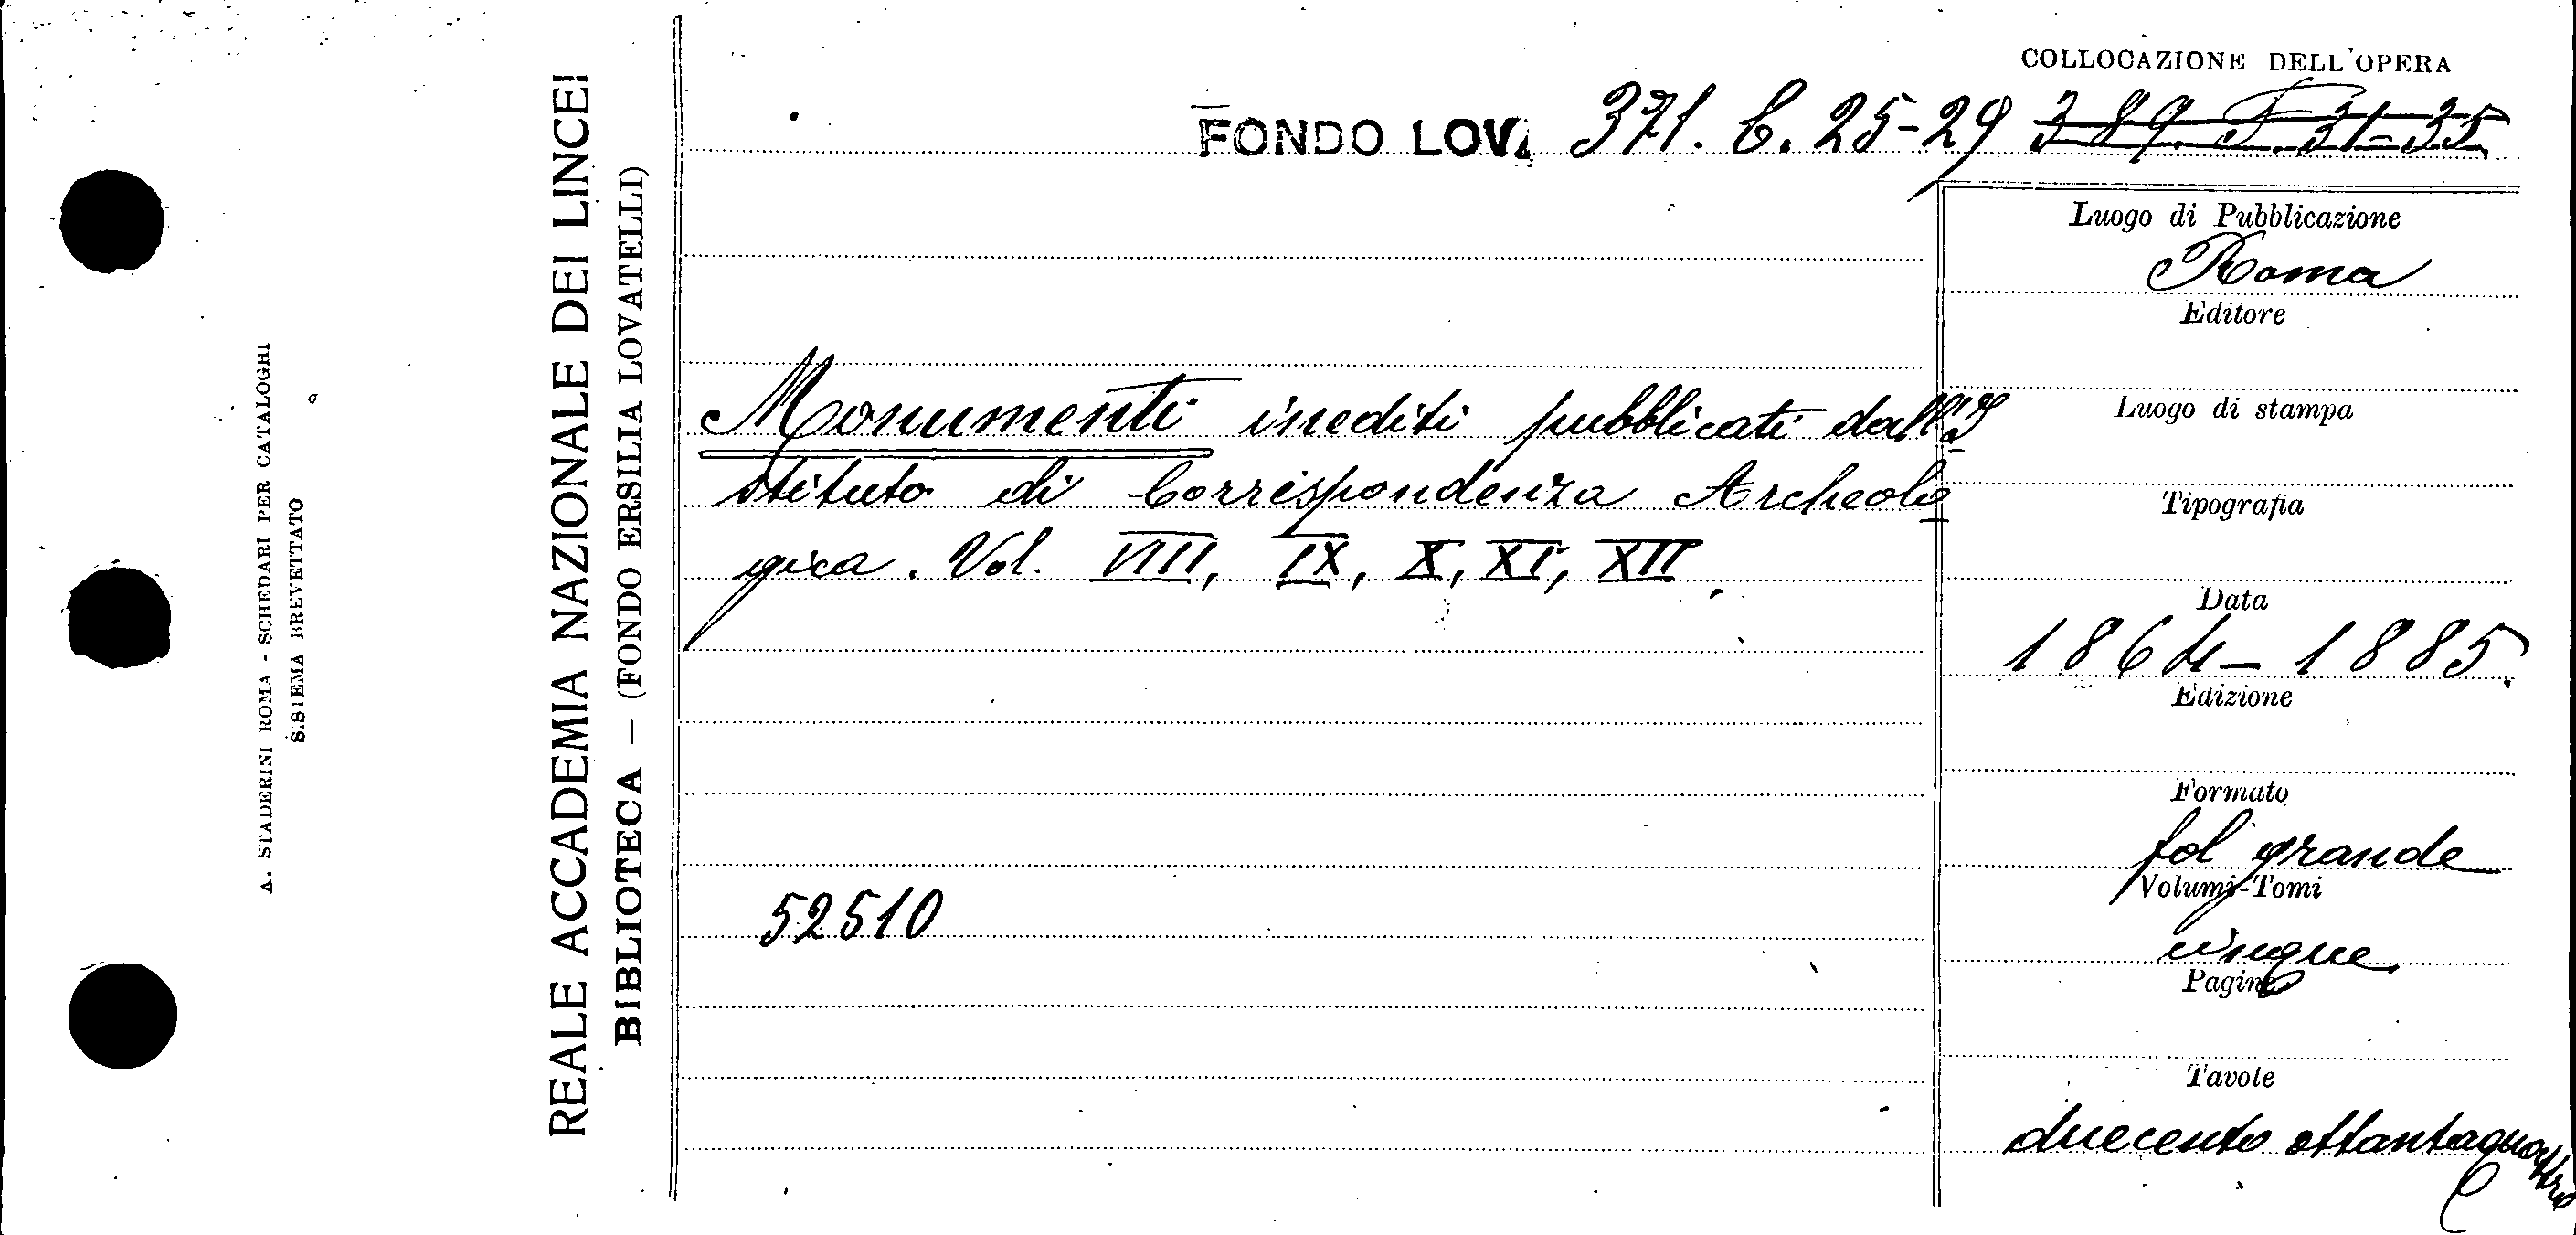 COLLOCAZIONE DELL'OPERA
FONDO LOV. 371. C. 25-29 389. F. 31-35
A. STADERINI ROMA - SCHEDARI PER CATALOGHI
SISTEMA BREVETTATO
REALE ACCADEMIA NAZIONALE DEI LINCEI
BIBLIOTECA — (FONDO ERSILIA LOVATELLI)
Monumenti inediti pubblicati dall'I
stituto di Corrispondenza Archeolo
gica. Vol. VIII, IX, X, XI, XII.
52510
Luogo di Pubblicazione
Roma
Editore
Luogo di stampa
Tipografia
Data
1864-1885
Edizione
Formato
fol grande
Volumi-Tomi
cinque
Pagine
Tavole
duecento ottantaquattro